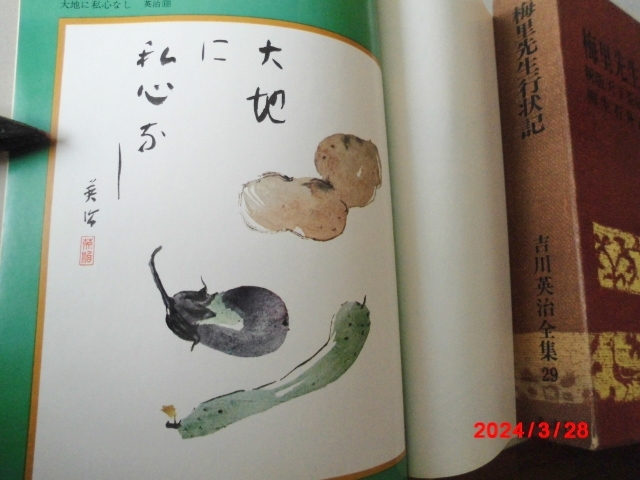 大地に私心なし 英治画
大地
に
私心な
し
英治
梅里先生行状記
吉川英治全集 29
梅里先生
2024/3/28